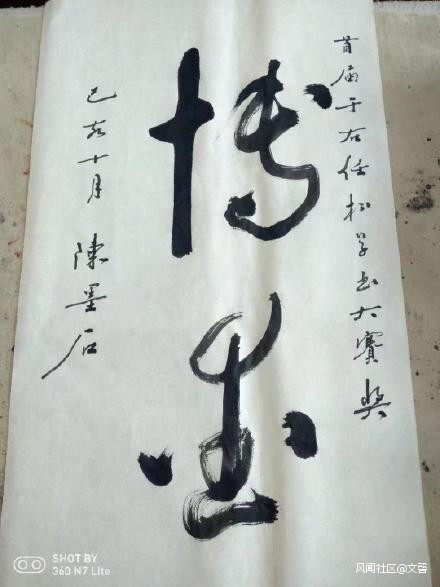 首届于右任杯草书大赛奖
博爱
己亥十月 陳墨石
SHOT BY
360 N7 Lite
风闻社区@文